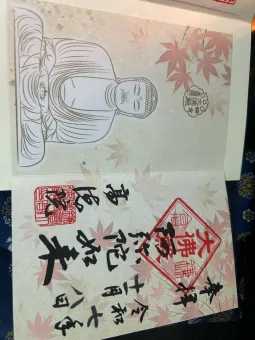 奉拝
令和七年
十一月八日
大佛
阿弥陀如来
高徳院